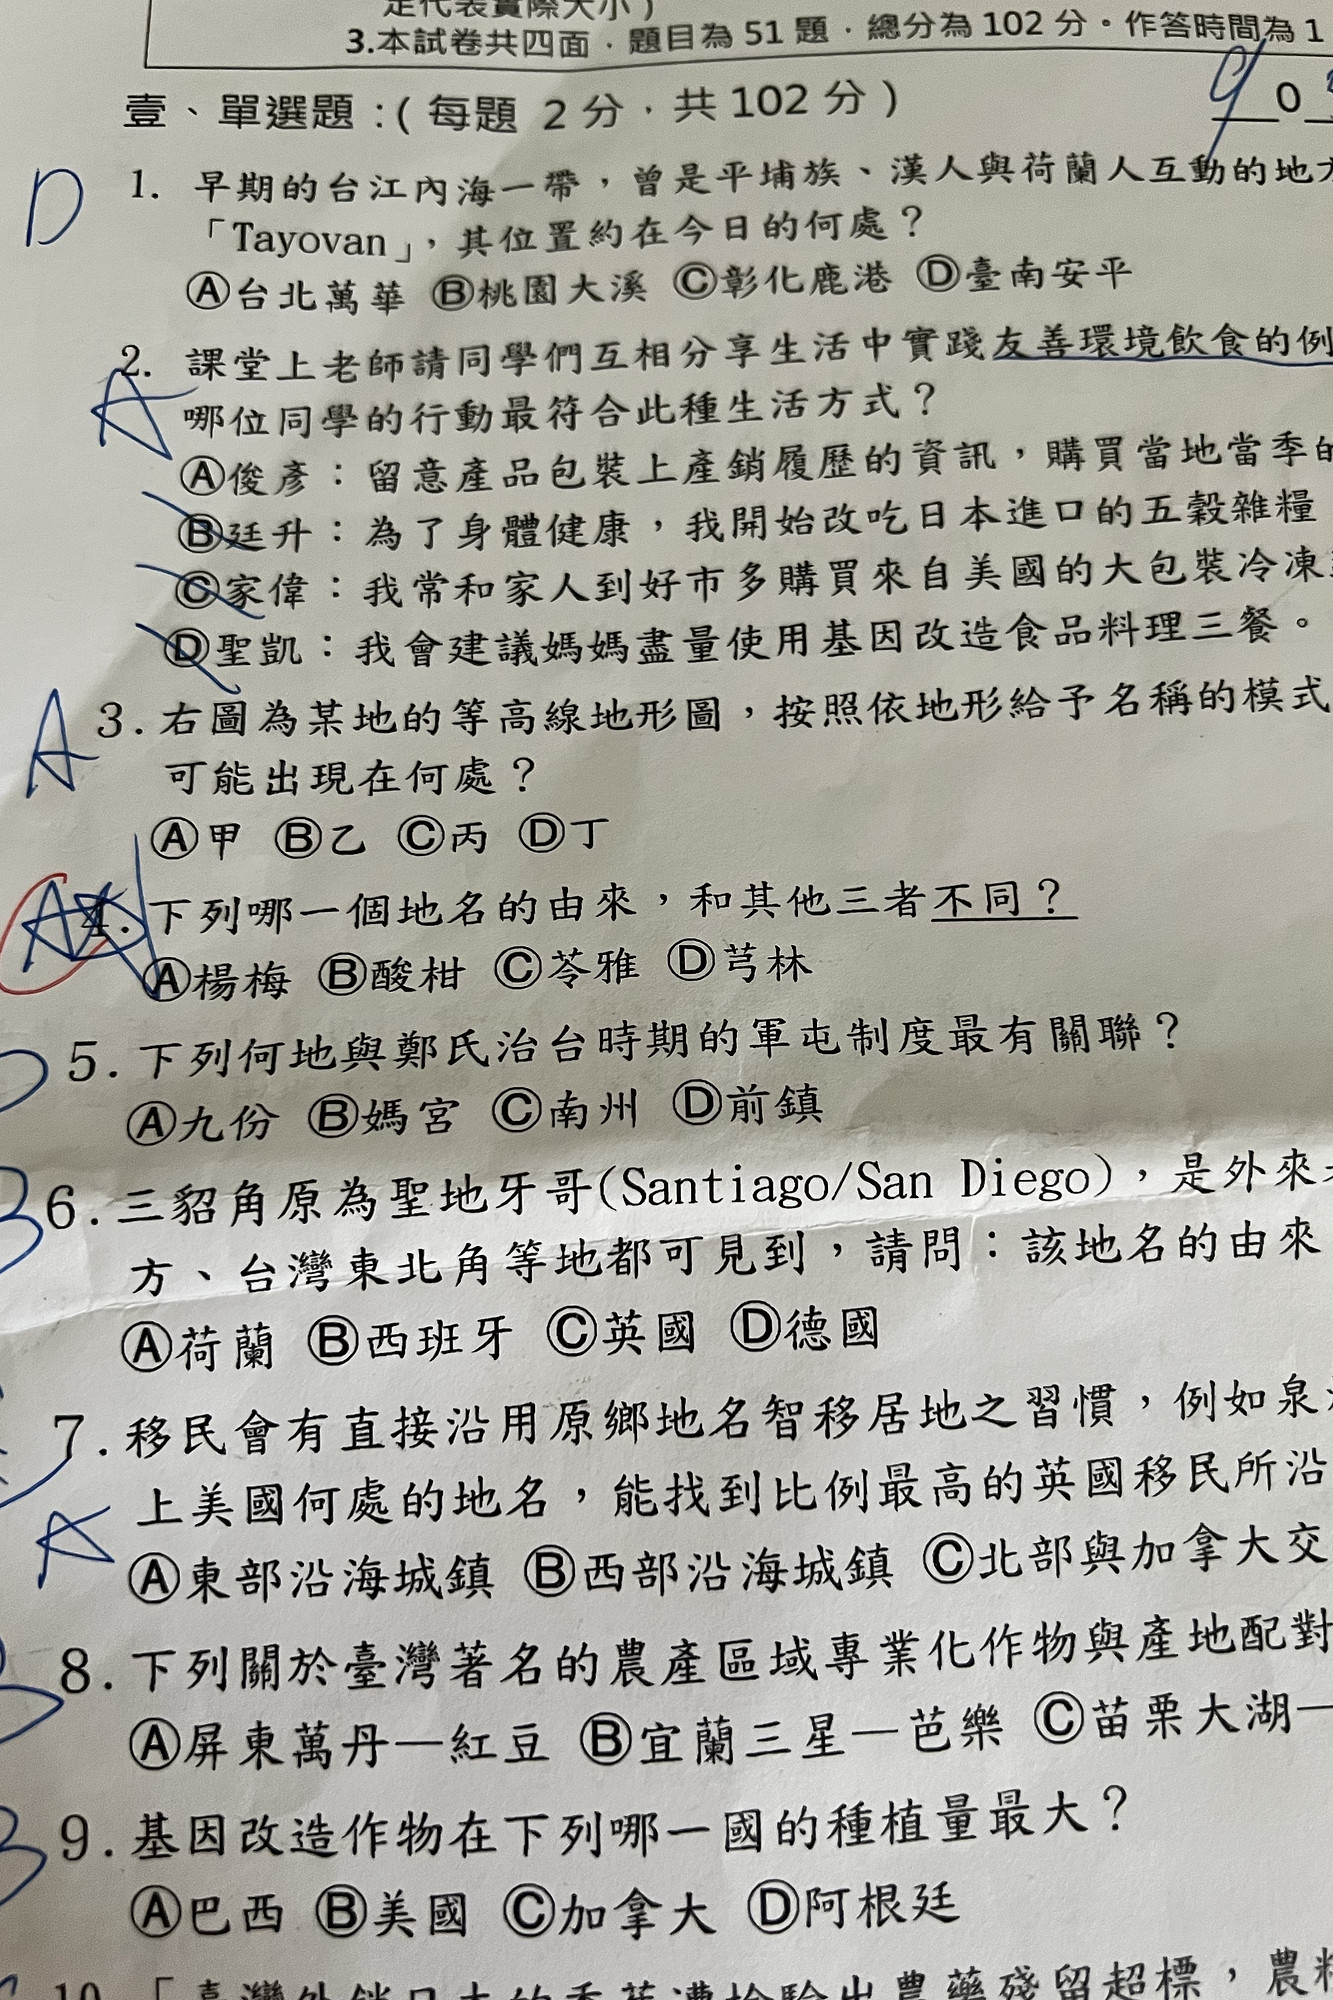 定代表實際大小）
3.本試卷共四面．題目為 51 題．總分為 102 分。作答時間為 1
壹、單選題：( 每題 2 分．共 102 分 )
9 0
D
1. 早期的台江內海一帶，曾是平埔族、漢人與荷蘭人互動的地方
「Tayovan」，其位置約在今日的何處？
Ⓐ台北萬華 Ⓑ桃園大溪 Ⓒ彰化鹿港 Ⓓ臺南安平
2. 課堂上老師請同學們互相分享生活中實踐友善環境飲食的例
A
哪位同學的行動最符合此種生活方式？
Ⓐ俊彥：留意產品包裝上產銷履歷的資訊，購買當地當季的
Ⓑ廷升：為了身體健康，我開始改吃日本進口的五穀雜糧
Ⓒ家偉：我常和家人到好市多購買來自美國的大包裝冷凍
Ⓓ聖凱：我會建議媽媽盡量使用基因改造食品料理三餐。
A
3. 右圖為某地的等高線地形圖，按照依地形給予名稱的模式
可能出現在何處？
Ⓐ甲 Ⓑ乙 Ⓒ丙 Ⓓ丁
A
4. 下列哪一個地名的由來，和其他三者不同？
Ⓐ楊梅 Ⓑ酸柑 Ⓒ苓雅 Ⓓ芎林
5. 下列何地與鄭氏治台時期的軍屯制度最有關聯？
Ⓐ九份 Ⓑ媽宮 Ⓒ南州 Ⓓ前鎮
B
6. 三貂角原為聖地牙哥(Santiago/San Diego)，是外來
方、台灣東北角等地都可見到，請問：該地名的由來
Ⓐ荷蘭 Ⓑ西班牙 Ⓒ英國 Ⓓ德國
7. 移民會有直接沿用原鄉地名智移居地之習慣，例如泉
上美國何處的地名，能找到比例最高的英國移民所沿
A
Ⓐ東部沿海城鎮 Ⓑ西部沿海城鎮 Ⓒ北部與加拿大交
B
8. 下列關於臺灣著名的農產區域專業化作物與產地配對
Ⓐ屏東萬丹—紅豆 Ⓑ宜蘭三星—芭樂 Ⓒ苗栗大湖—
B
9. 基因改造作物在下列哪一國的種植量最大？
Ⓐ巴西 Ⓑ美國 Ⓒ加拿大 Ⓓ阿根廷
10. 「臺灣外銷日本的香蕉遭檢驗出農藥殘留超標，農糧